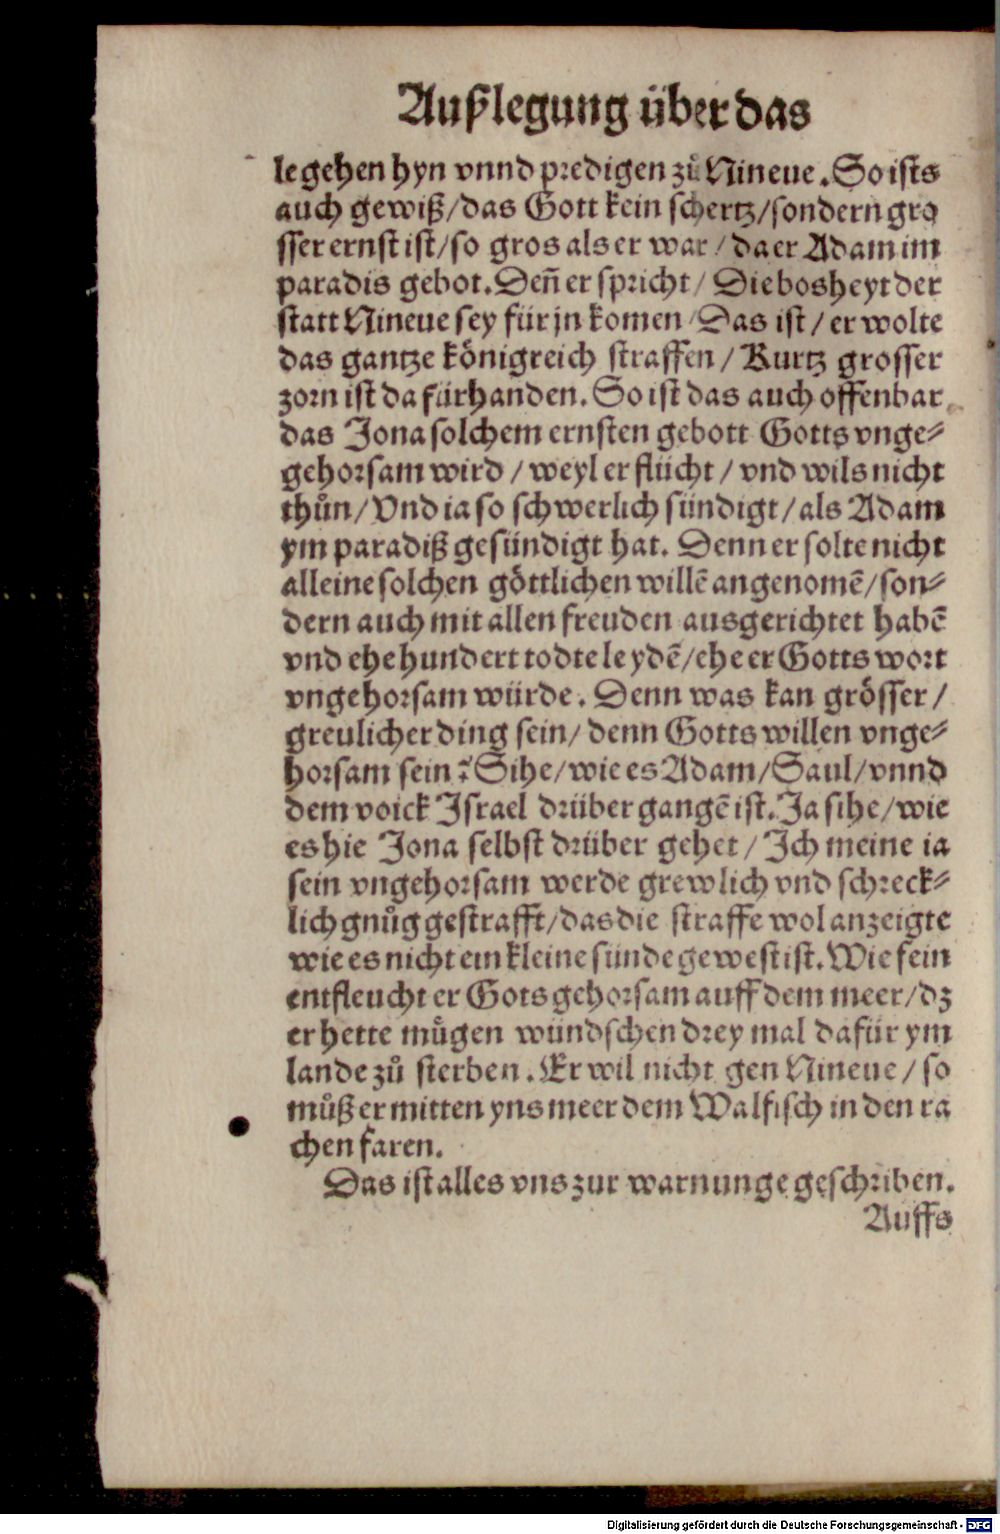 Außlegung über das
le gehen hyn vnnd predigen zů Nineue. So ists
auch gewiß/das Gott kein schertz/sondern gro
sser ernst ist/so gros als er war/da er Adam im
paradis gebot. Deñ er spricht/ Die bosheyt der
statt Nineue sey für jn komen/Das ist/er wolte
das gantze königreich straffen/Kurtz grosser
zorn ist da fürhanden. So ist das auch offenbar
das Jona solchem ernsten gebott Gotts vnge-
gehorsam wird/weyl er flücht/vnd wils nicht
thůn/Vnd ia so schwerlich sündigt/als Adam
ym paradiß gesündigt hat. Denn er solte nicht
alleine solchen göttlichen willē angenomē/son-
dern auch mit allen freuden ausgerichtet habē
vnd ehe hundert todte leydē/ehe er Gotts wort
vngehorsam würde. Denn was kan grösser/
greulicher ding sein/denn Gotts willen vnge-
horsam sein? Sihe/wie es Adam/Saul/vnnd
dem voick Israel drüber gangē ist. Ja sihe/wie
es hie Jona selbst drüber gehet/Ich meine ia
sein vngehorsam werde grewlich vnd schreck-
lich gnůg gestrafft/das die straffe wol anzeigte
wie es nicht ein kleine sünde gewest ist. Wie fein
entfleucht er Gots gehorsam auff dem meer/dz
er hette mügen wündschen drey mal dafür ym
lande zů sterben. Er wil nicht gen Nineue/so
můß er mitten yns meer dem Walfisch in den ra
chen faren.
Das ist alles vns zur warnunge geschriben.
Auffs
Digitalisierung gefördert durch die Deutsche Forschungsgemeinschaft - DFG